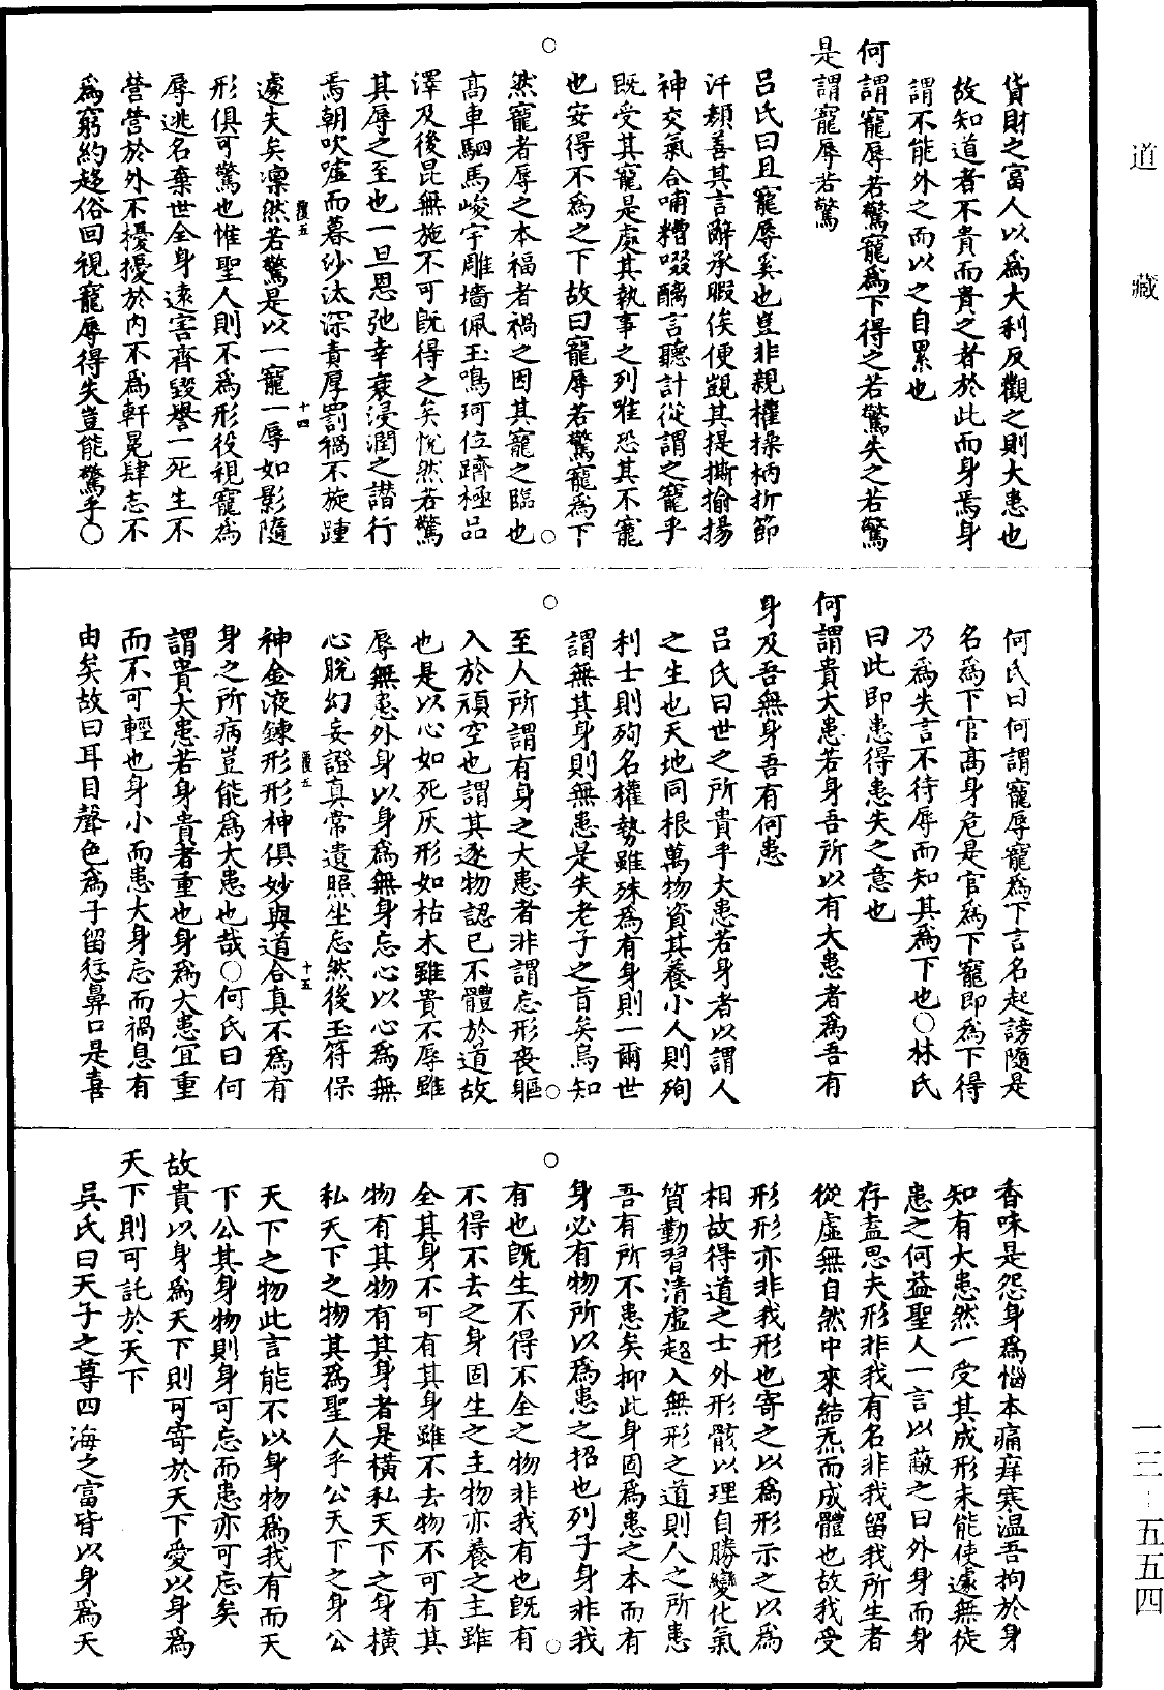 道藏
一三-五五四
貨財之富人以為大利反觀之則大患也
故知道者不貴而貴之者於此而身焉身
謂不能外之而以之自累也
何謂寵辱若驚寵為下得之若驚失之若驚
是謂寵辱若驚
呂氏曰且寵辱奚也豈非親權操柄折節
汗顏善其言辭承暇俟便覬其提撕揄揚
神交氣合哺糟啜醨言聽計從謂之寵乎
既受其寵是處其執事之列唯恐其不寵
也安得不為之下故曰寵辱若驚寵為下
然寵者辱之本福者禍之因其寵之臨也
高車駟馬峻宇雕墻佩玉鳴珂位躋極品
澤及後昆無施不可既得之矣恍然若驚
其辱之至也一旦恩弛幸衰浸潤之譖行
焉朝吹噓而暮紗汰深責厚罰禍不旋踵
遽夫矣凛然若驚是以一寵一辱如影隨
形俱可驚也惟聖人則不為形役視寵為
辱逃名棄世全身遠害齊毀譽一死生不
營營於外不擾擾於內不為軒冕肆志不
為窮約趨俗回視寵辱得失豈能驚乎○
何氏曰何謂寵辱寵為下言名起謗隨是
名為下官高身危是官為下寵即為下得
乃為失言不待辱而知其為下也○林氏
曰此即患得患失之意也
何謂貴大患若身吾所以有大患者為吾有
身及吾無身吾有何患
呂氏曰世之所貴乎大患若身者以謂人
之生也天地同根萬物資其養小人則殉
利士則殉名權勢雖殊為有身則一爾世
謂無其身則無患是失老子之旨矣烏知
至人所謂有身之大患者非謂忘形喪軀
入於頑空也謂其逐物認已不體於道故
也是以心如死灰形如枯木雖貴不辱雖
辱無患外身以身為無身忘心以心為無
心脫幻妄證真常遺照坐忘然後玉符保
神金液鍊形形神俱妙與道合真不為有
身之所病豈能為大患也哉○何氏曰何
謂貴大患若身貴者重也身為大患宜重
而不可輕也身小而患大身忘而禍息有
由矣故曰耳目聲色為子留愆鼻口是喜
香味是怨身為惱本痛痒寒溫吾拘於身
知有大患然一受其成形未能使遽無徒
患之何益聖人一言以蔽之曰外身而身
存盍思夫形非我有名非我留我所生者
從虛無自然中來結炁而成體也故我受
形形亦非我形也寄之以為形示之以為
相故得道之士外形骸以理自勝變化氣
質勤習清虛超入無形之道則人之所患
吾有所不患矣抑此身固為患之本而有
身必有物所以為患之招也列子身非我
有也既生不得不全之物非我有也既有
不得不去之身固生之主物亦養之主雖
全其身不可有其身雖不去物不可有其
物有其物有其身者是橫私天下之身橫
私天下之物其為聖人乎公天下之身公
天下之物此言能不以身物為我有而天
下公其身物則身可忘而患亦可忘矣
故貴以身為天下則可寄於天下愛以身為
天下則可託於天下
吳氏曰天子之尊四海之富皆以身為天